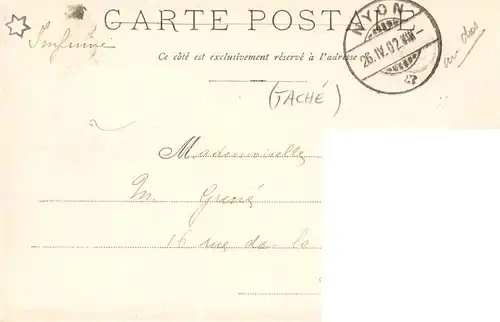 CARTE POSTALE
Imprimé
Ce côté est exclusivement réservé à l'adresse
NYON
26.IV.02.VIII-
au dos
(TACHÉ)
Mademoiselle
M.
16 rue de la